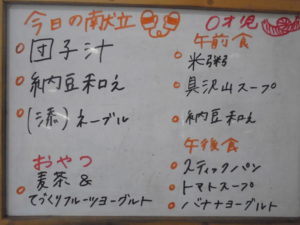 今日の献立
団子汁
納豆和え
(添)ネーブル
おやつ
麦茶&
てづくりフルーツヨーグルト
0才児
午前食
米粥
具沢山スープ
納豆和え
午後食
スティックパン
トマトスープ
バナナヨーグルト